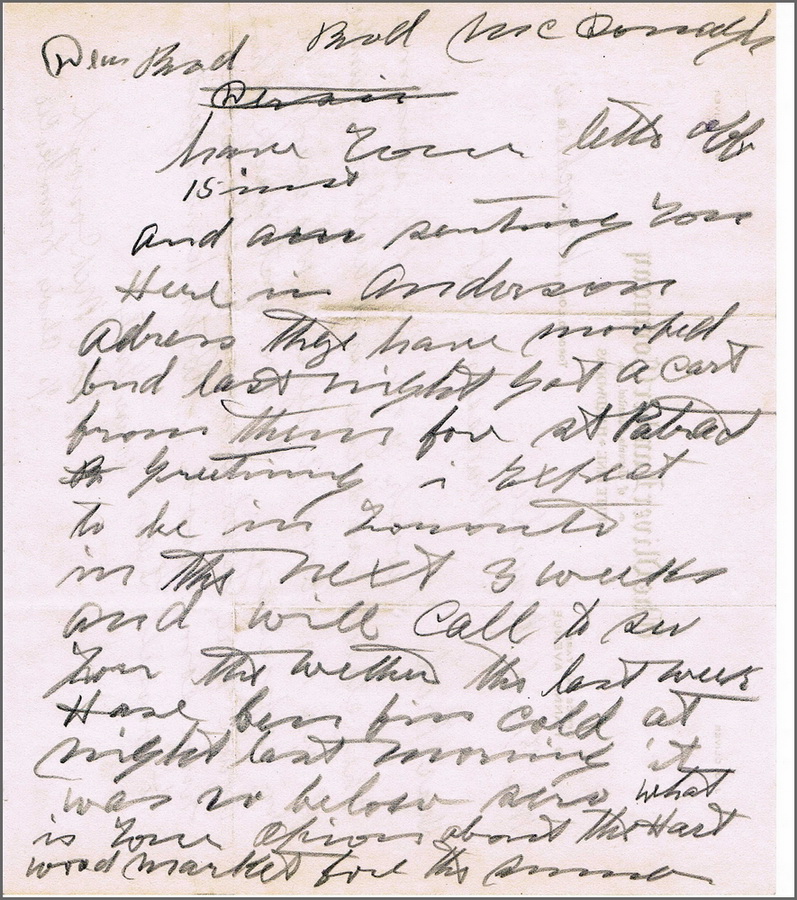 Dear Brad Brod McDonagh
have Your letter off
15 inst
and am senting You
Here in Anderson
adress They have mooved
and last night got a Cart
from them for st Patrad
Greeting i Expect
to be in Toronto
in the next 3 weeks
and will Call to see
Your the wether the last week
Have been fine cold at
night last morning it
was 20 below sero what
is Youre opinion about the Hart
wood market fore the summer